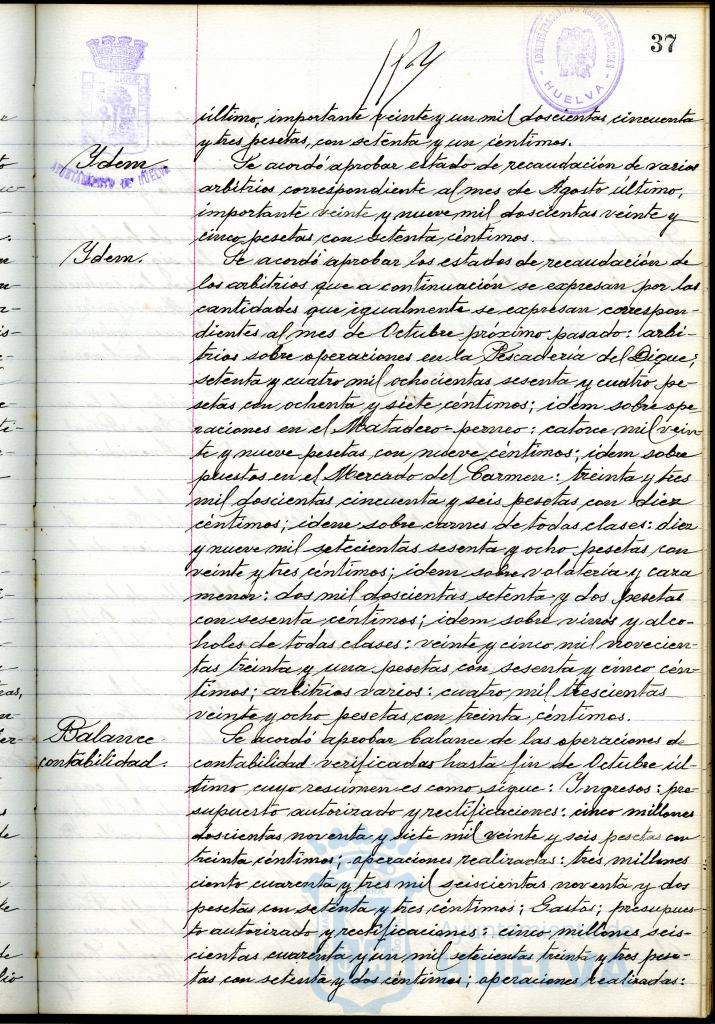 37
ADMINISTRACION DE RENTAS PUBLICAS
HUELVA
AYUNTAMIENTO DE HUELVA
último, importante veinte y un mil doscientas cincuenta
y tres pesetas, con setenta y un céntimos.
Ydem
Se acordó aprobar estado de recaudación de varios
arbitrios correspondiente al mes de Agosto último,
importante veinte y nueve mil doscientas veinte y
cinco pesetas con setenta céntimos.
Ydem.
Se acordó aprobar los estados de recaudación de
los arbitrios que a continuación se expresan por las
cantidades que igualmente se expresan correspon-
dientes al mes de Octubre próximo pasado: arbi-
trios sobre operaciones en la Pescadería del Dique;
setenta y cuatro mil ochocientas sesenta y cuatro pe-
setas con ochenta y siete céntimos; idem sobre ope-
raciones en el Matadero-perneo: catorce mil vein-
te y nueve pesetas con nueve céntimos; idem sobre
puestos en el Mercado del Carmen: treinta y tres
mil doscientas cincuenta y seis pesetas con diez
céntimos; idem sobre carnes de todas clases: diez
y nueve mil setecientas sesenta y ocho pesetas con
veinte y tres céntimos; idem sobre volatería y caza
menor: dos mil doscientas setenta y dos pesetas
con sesenta céntimos; idem sobre vinos y alco-
holes de todas clases: veinte y cinco mil novecien-
tas treinta y una pesetas con sesenta y cinco cén-
timos; arbitrios varios: cuatro mil trescientas
veinte y ocho pesetas con treinta céntimos.
Balance
contabilidad.
Se acordó aprobar balance de las operaciones de
contabilidad verificadas hasta fin de Octubre úl-
timo, cuyo resúmen es como sigue: Yngresos: pre-
supuesto autorizado y rectificaciones: cinco millones
doscientas noventa y siete mil veinte y seis pesetas con
treinta céntimos; operaciones realizadas: tres millones
ciento cuarenta y tres mil seiscientas noventa y dos
pesetas con setenta y tres céntimos; Gastos; presupues-
to autorizado y rectificaciones: cinco millones seis-
cientas cuarenta y un mil setecientas treinta y tres pese-
tas con setenta y dos céntimos; operaciones realizadas:
HUELVA